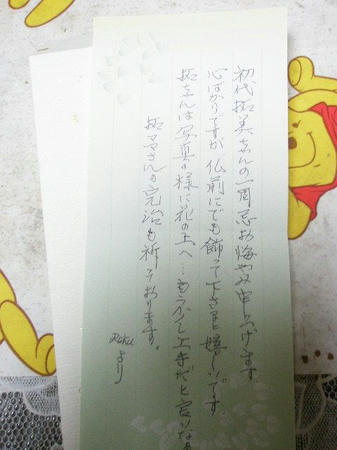 初代拓美ちゃんの一周忌お悔やみ申し上げます。
心ばかりですが 仏前にでも飾って下さると嬉しいです。
拓ちゃんは写真の様に花の上へ…もう少し上手だと良いなぁ
拓ママさんの完治も祈っております。
より